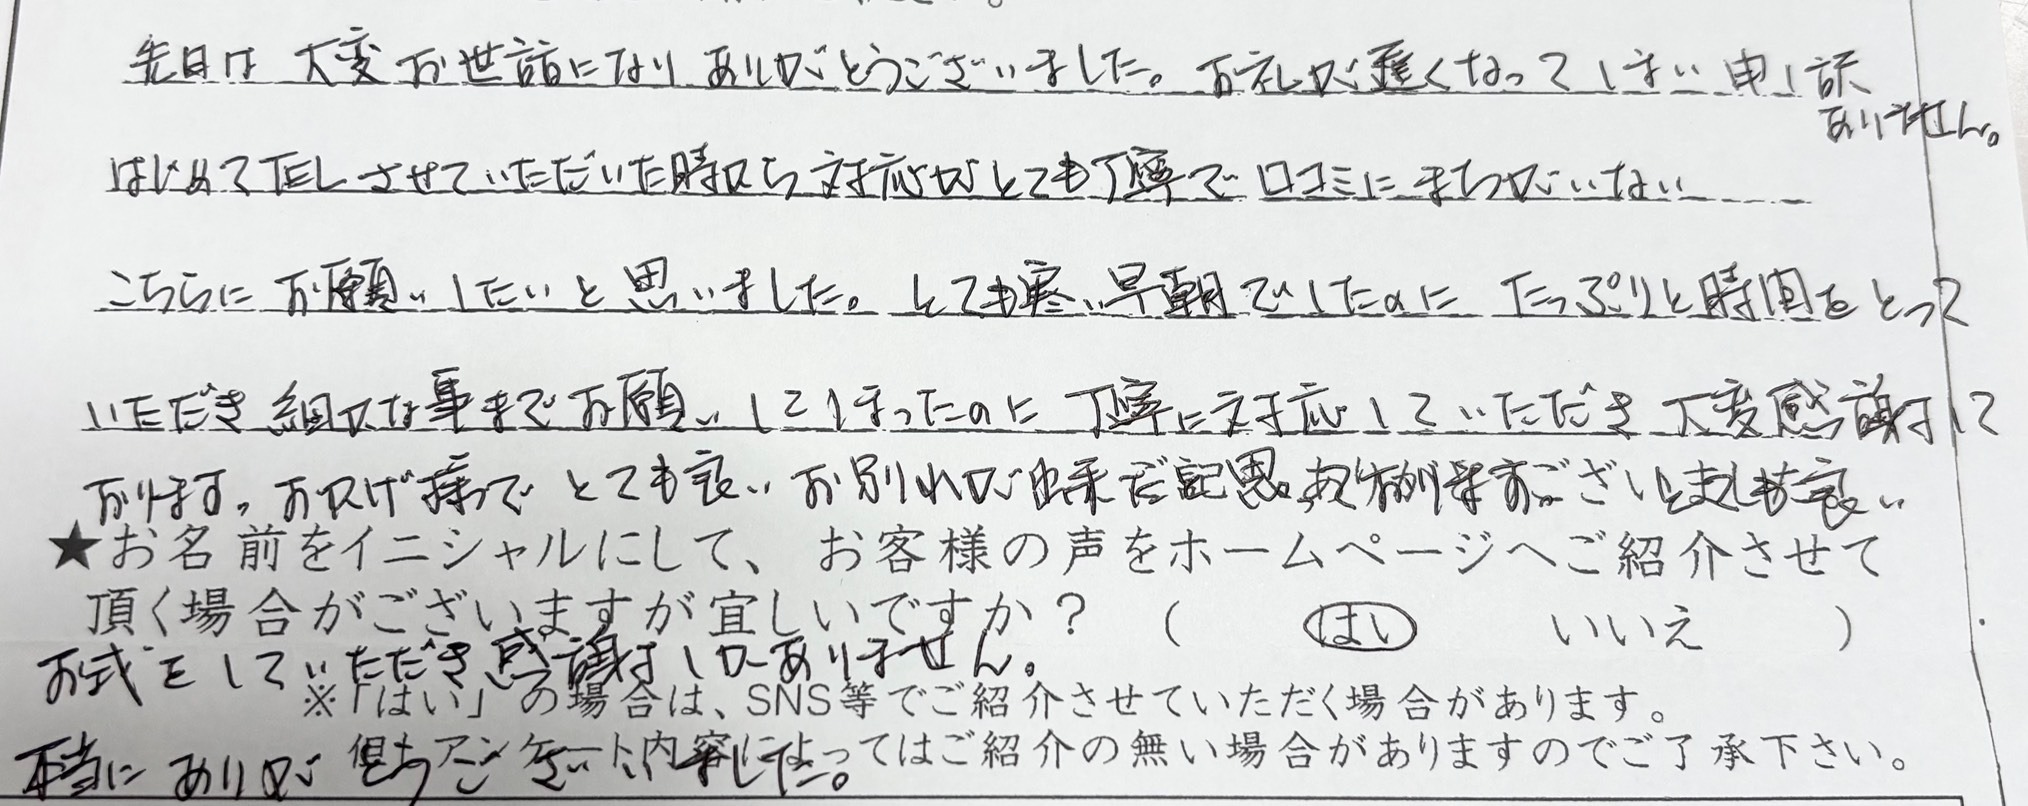 先日は大変お世話になりありがとうございました。お礼が遅くなってしまい申し訳
ありません。
はじめてTELさせていただいた時から対応がとても丁寧で口コミにまちがいない
こちらにお願いしたいと思いました。とても寒い早朝でしたのにたっぷりと時間をとって
いただき細かな事までお願いしてしまったのに丁寧に対応していただき大変感謝して
おります。おかげ様でとても良いお別れが出来たと思
★お名前をイニシャルにして、お客様の声をホームページへご紹介させて
頂く場合がございますが宜しいですか？（ はい いいえ ）
お式をしていただき感謝しかありません。
※「はい」の場合は、SNS等でご紹介させていただく場合があります。
但しアンケート内容によってはご紹介の無い場合がありますのでご了承下さい。
本当にありがとうございました。